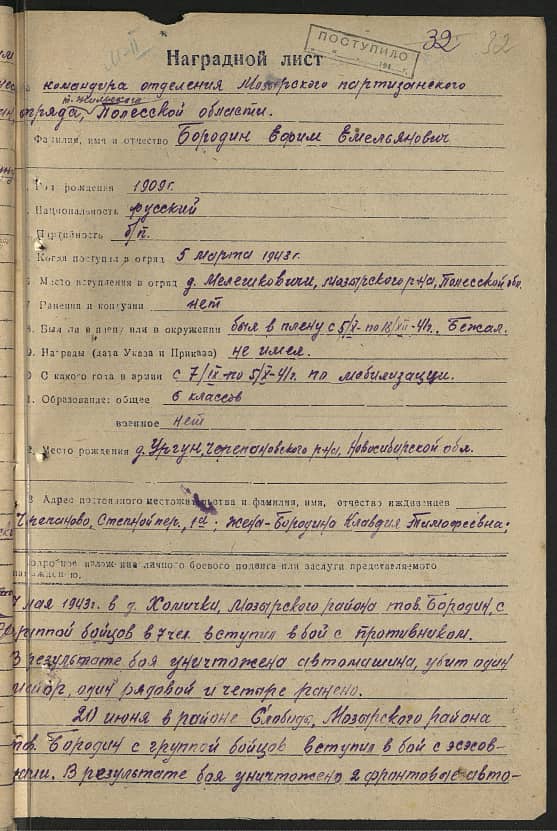 32 32
ПОСТУПИЛО
Наградной лист
командира отделения Мозырского партизанского
отряда, Полесской области.
Фамилия, имя и отчество Бородин Ефим Емельянович
Год рождения 1909 г.
Национальность русский
Партийность б/п.
Когда поступил в отряд 5 марта 1943 г.
6 Место вступления в отряд д. Мелешковичи, Мозырского р-на, Полесской обл.
7 Ранения и контузии нет
8. Был ли в плену или в окружении был в плену с 5/X- по 16/XII-41г. Бежал.
9. Награды (дата Указа и Приказа) не имел.
0 С какого года в армии с 7/IX-по 5/X-41г. по мобилизации.
1. Образование: общее 6 классов
военное нет
2. Место рождения д. Ургун, Черепановского р-на, Новосибирской обл.
3 Адрес постоянного местожительства и фамилия, имя, отчество иждивенцев
Черепаново, Степной пер., жена-Бородина Клавдия Тимофеевна;
Подробное изложение личного боевого подвига или заслуги представляемого
награждению.
7 мая 1943г. в д. Хомички, Мозырского района тов. Бородин, с
группой бойцов в 7 чел. вступил в бой с противником.
В результате боя уничтожена автомашина, убит один
майор, один рядовой и четыре ранено.
20 июня в районе Слобиды, Мозырского района
тов. Бородин с группой бойцов вступил в бой с эсэсов-
цами. В результате боя уничтожено 2 фронтовые авто-